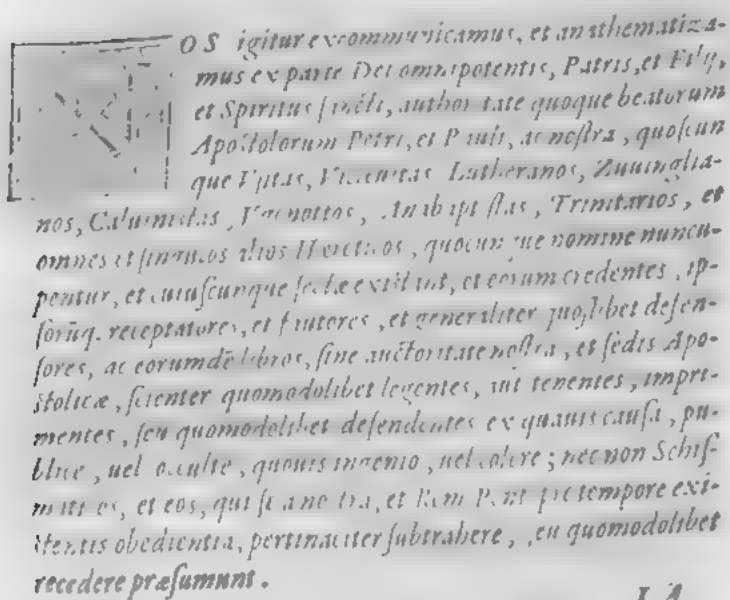 NOS igitur excommunicamus, et anathematiza-
mus ex parte Dei omnipotentis, Patris, et Filij,
et Spiritus ſancti, authoritate quoque beatorum
Apoſtolorum Petri, et Pauli, ac noſtra, quoſcun
que Vſitas, Lutheranos, Zuuinglia-
nos, Caluiniſtas, Vgonottos, Anabaptiſtas, Trinitarios, et
omnes et ſingulos alios Hæreticos, quocunque nomine nuncu-
pentur, et cuiuſcunque ſectæ exiſtant, et eorum credentes, ip-
ſorūq. receptatores, et fautores, et generaliter quoſlibet defen-
ſores, ac eorumdē libros, ſine auctoritate noſtra, et ſedis Apo-
ſtolicæ, ſcienter quomodolibet legentes, aut tenentes, impri-
mentes, ſeu quomodolibet defendentes ex quauis cauſa, pu-
blice, uel occulte, quouis ingenio, uel colore; necnon Schiſ-
maticos, et eos, qui ſe a noſtra, et Rom. Pont. pro tempore exi-
ſtentis obedientia, pertinaciter ſubtrahere, ſeu quomodolibet
recedere præſumunt.